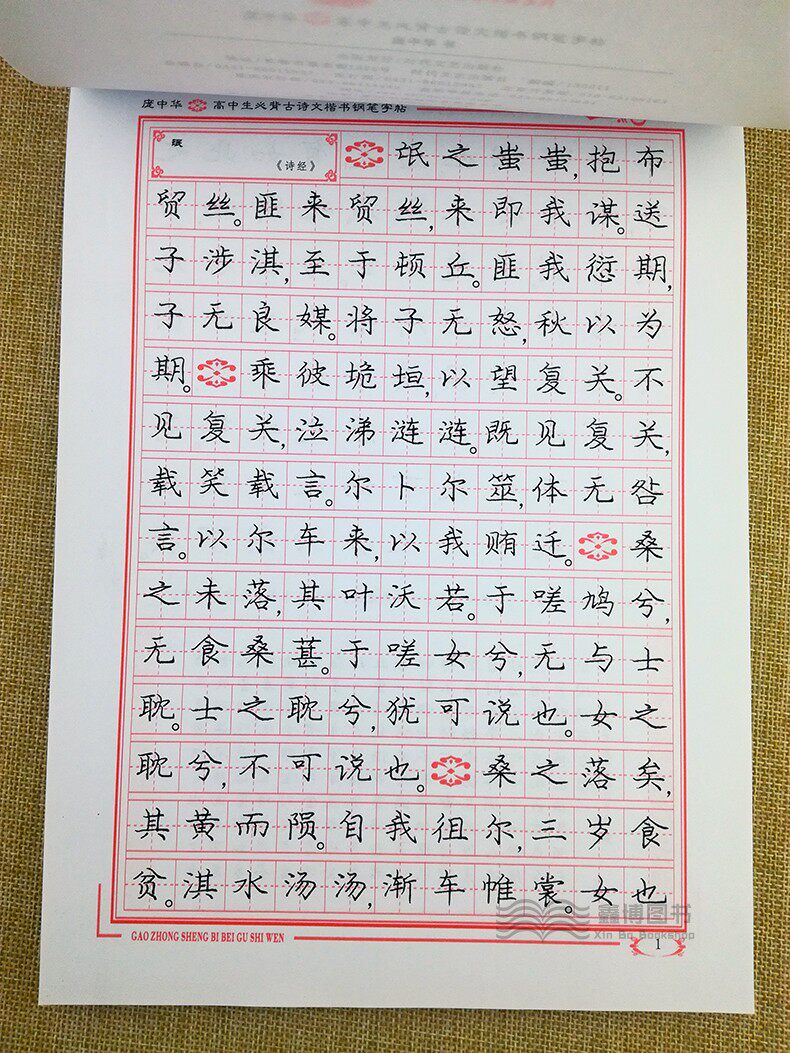 庞中华 高中生必背古诗文楷书钢笔字帖
氓
《诗经》
氓之蚩蚩,抱布
贸丝。匪来贸丝,来即我谋。送
子涉淇,至于顿丘。匪我愆期,
子无良媒。将子无怒,秋以为
期。乘彼垝垣,以望复关。不
见复关,泣涕涟涟。既见复关,
载笑载言。尔卜尔筮,体无咎
言。以尔车来,以我贿迁。桑
之未落,其叶沃若。于嗟鸠兮,
无食桑葚。于嗟女兮,无与士
耽。士之耽兮,犹可说也。女之
耽兮,不可说也。桑之落矣,
其黄而陨。自我徂尔,三岁食
贫。淇水汤汤,渐车帷裳。女也
鑫博图书
Xin Bo Bookshop
GAO ZHONG SHENG BI BEI GU SHI WEN
1